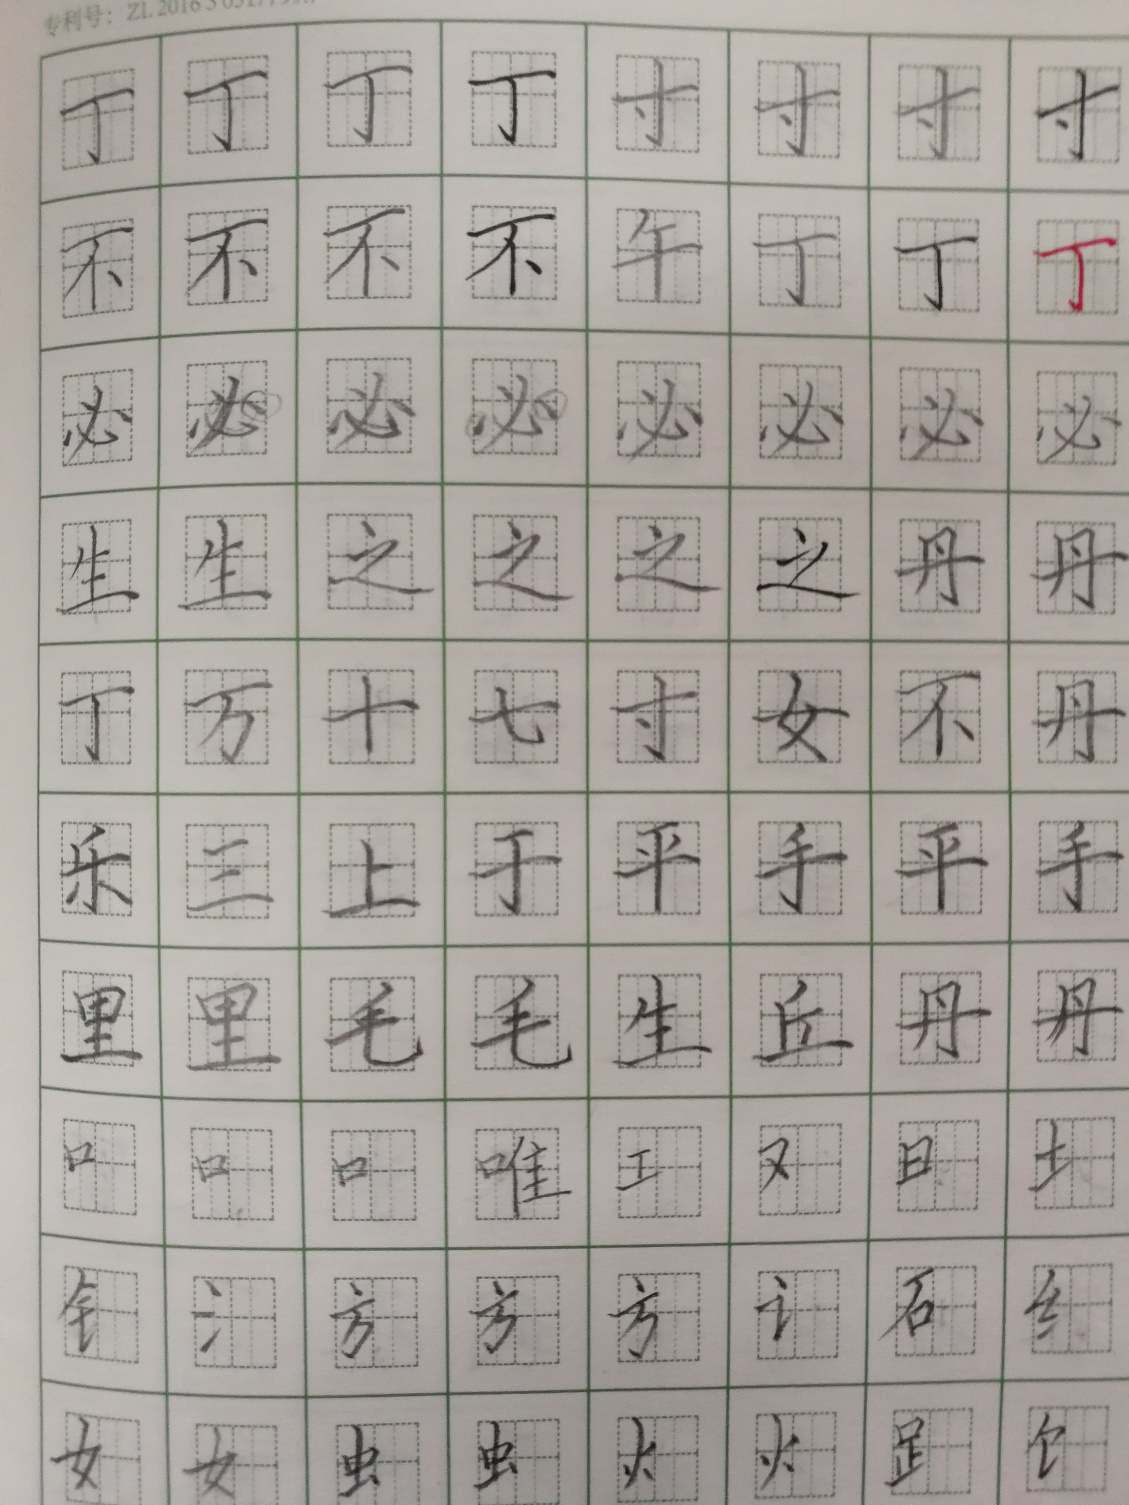 专利号：ZL 2016 3
丁 丁 丁 丁 寸 寸 寸 寸
不 不 不 不 午 丁 丁 丁
必 必 必 必 必 必 必 必
生 生 之 之 之 之 丹 丹
丁 万 十 七 寸 女 不 丹
乐 三 上 于 平 手 平 手
里 里 毛 毛 生 丘 丹 丹
口 口 口 唯 工 又 日 土
钅 氵 方 方 方 讠 石 纟
女 女 虫 虫 火 火 𧾷 饣